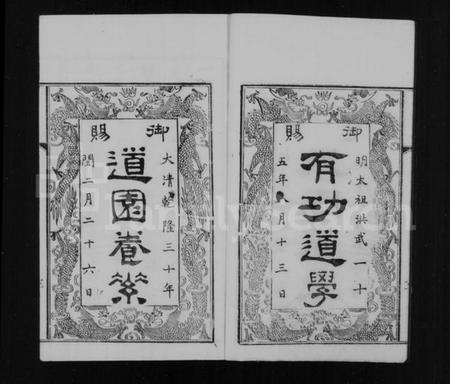 御賜
明太祖洪武一十
有功道學
五年八月十三日
御賜
大清乾隆三十年
道園
閏二月二十六日
FamilySearch